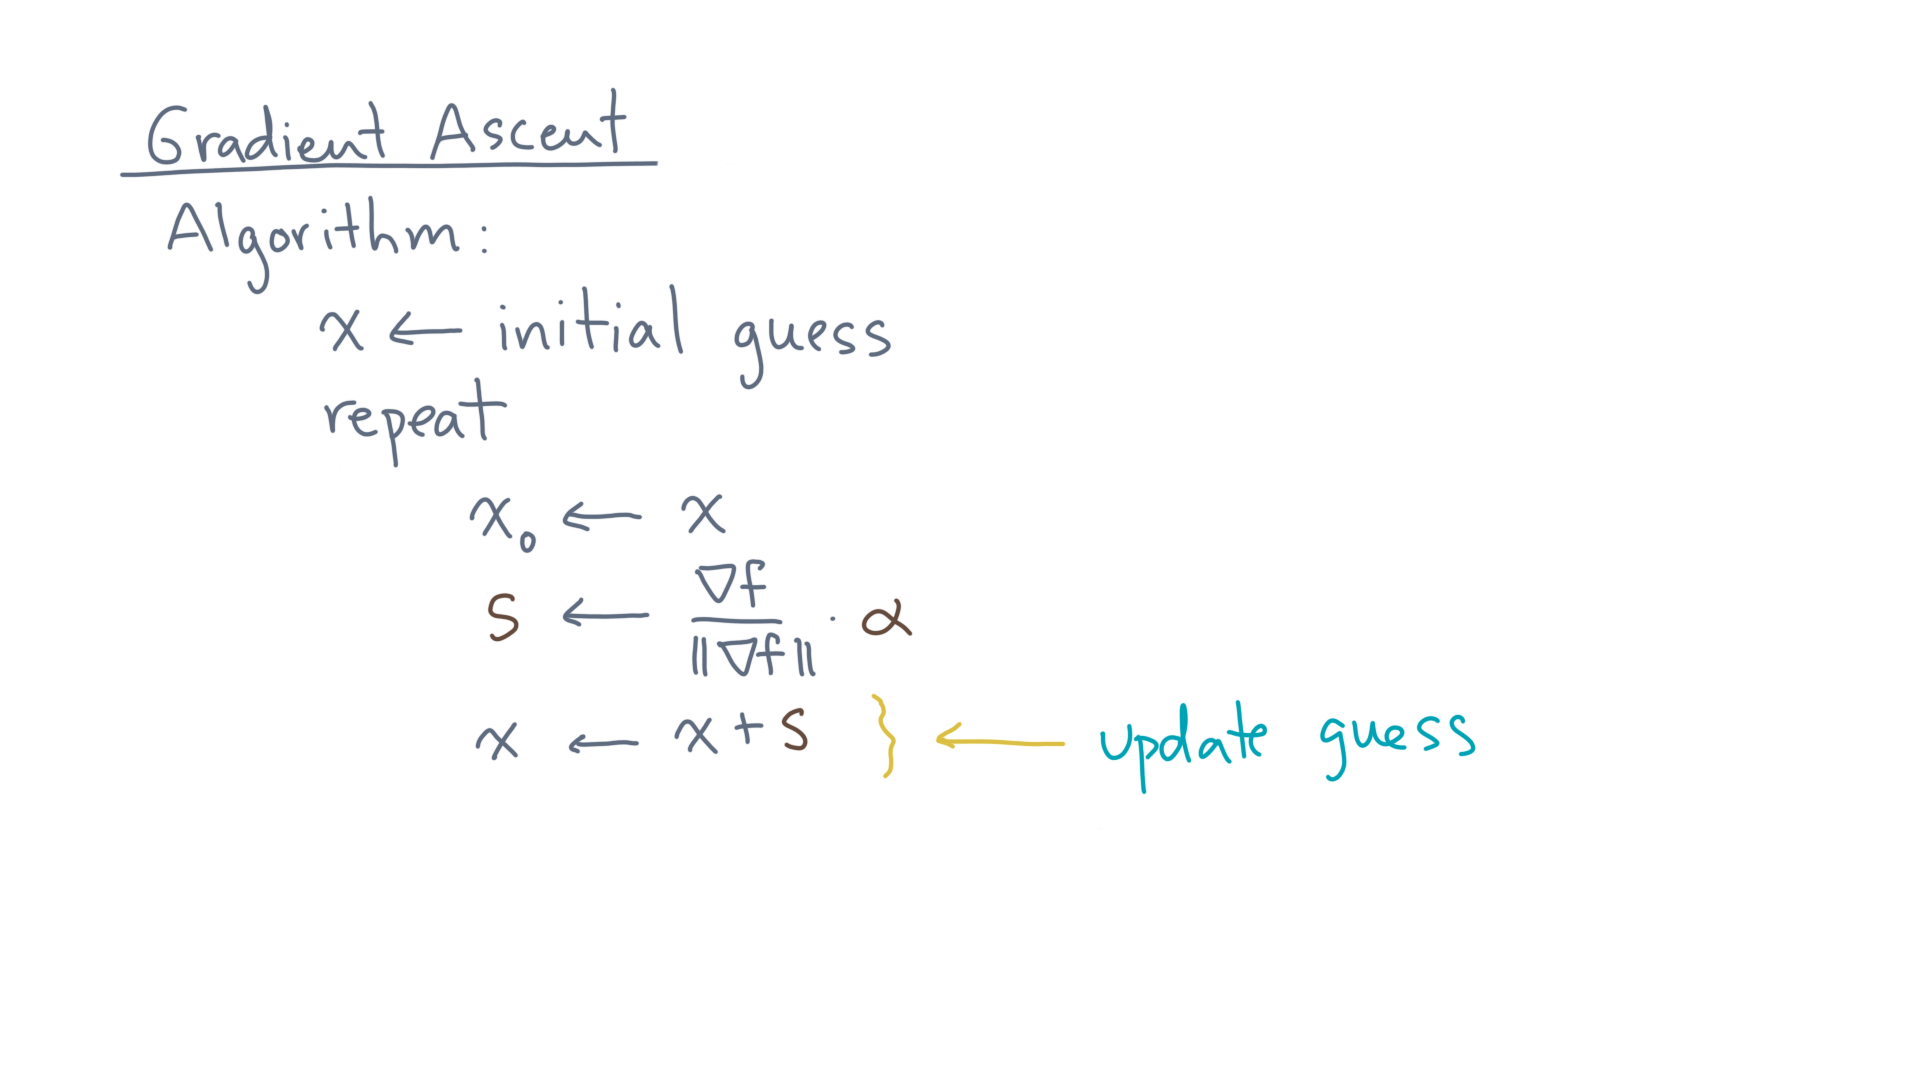 Gradient Ascent
Algorithm:
x ← initial guess
repeat
x₀ ← x
s ← ∇f / ‖∇f‖ · α
x ← x + s } ← update guess